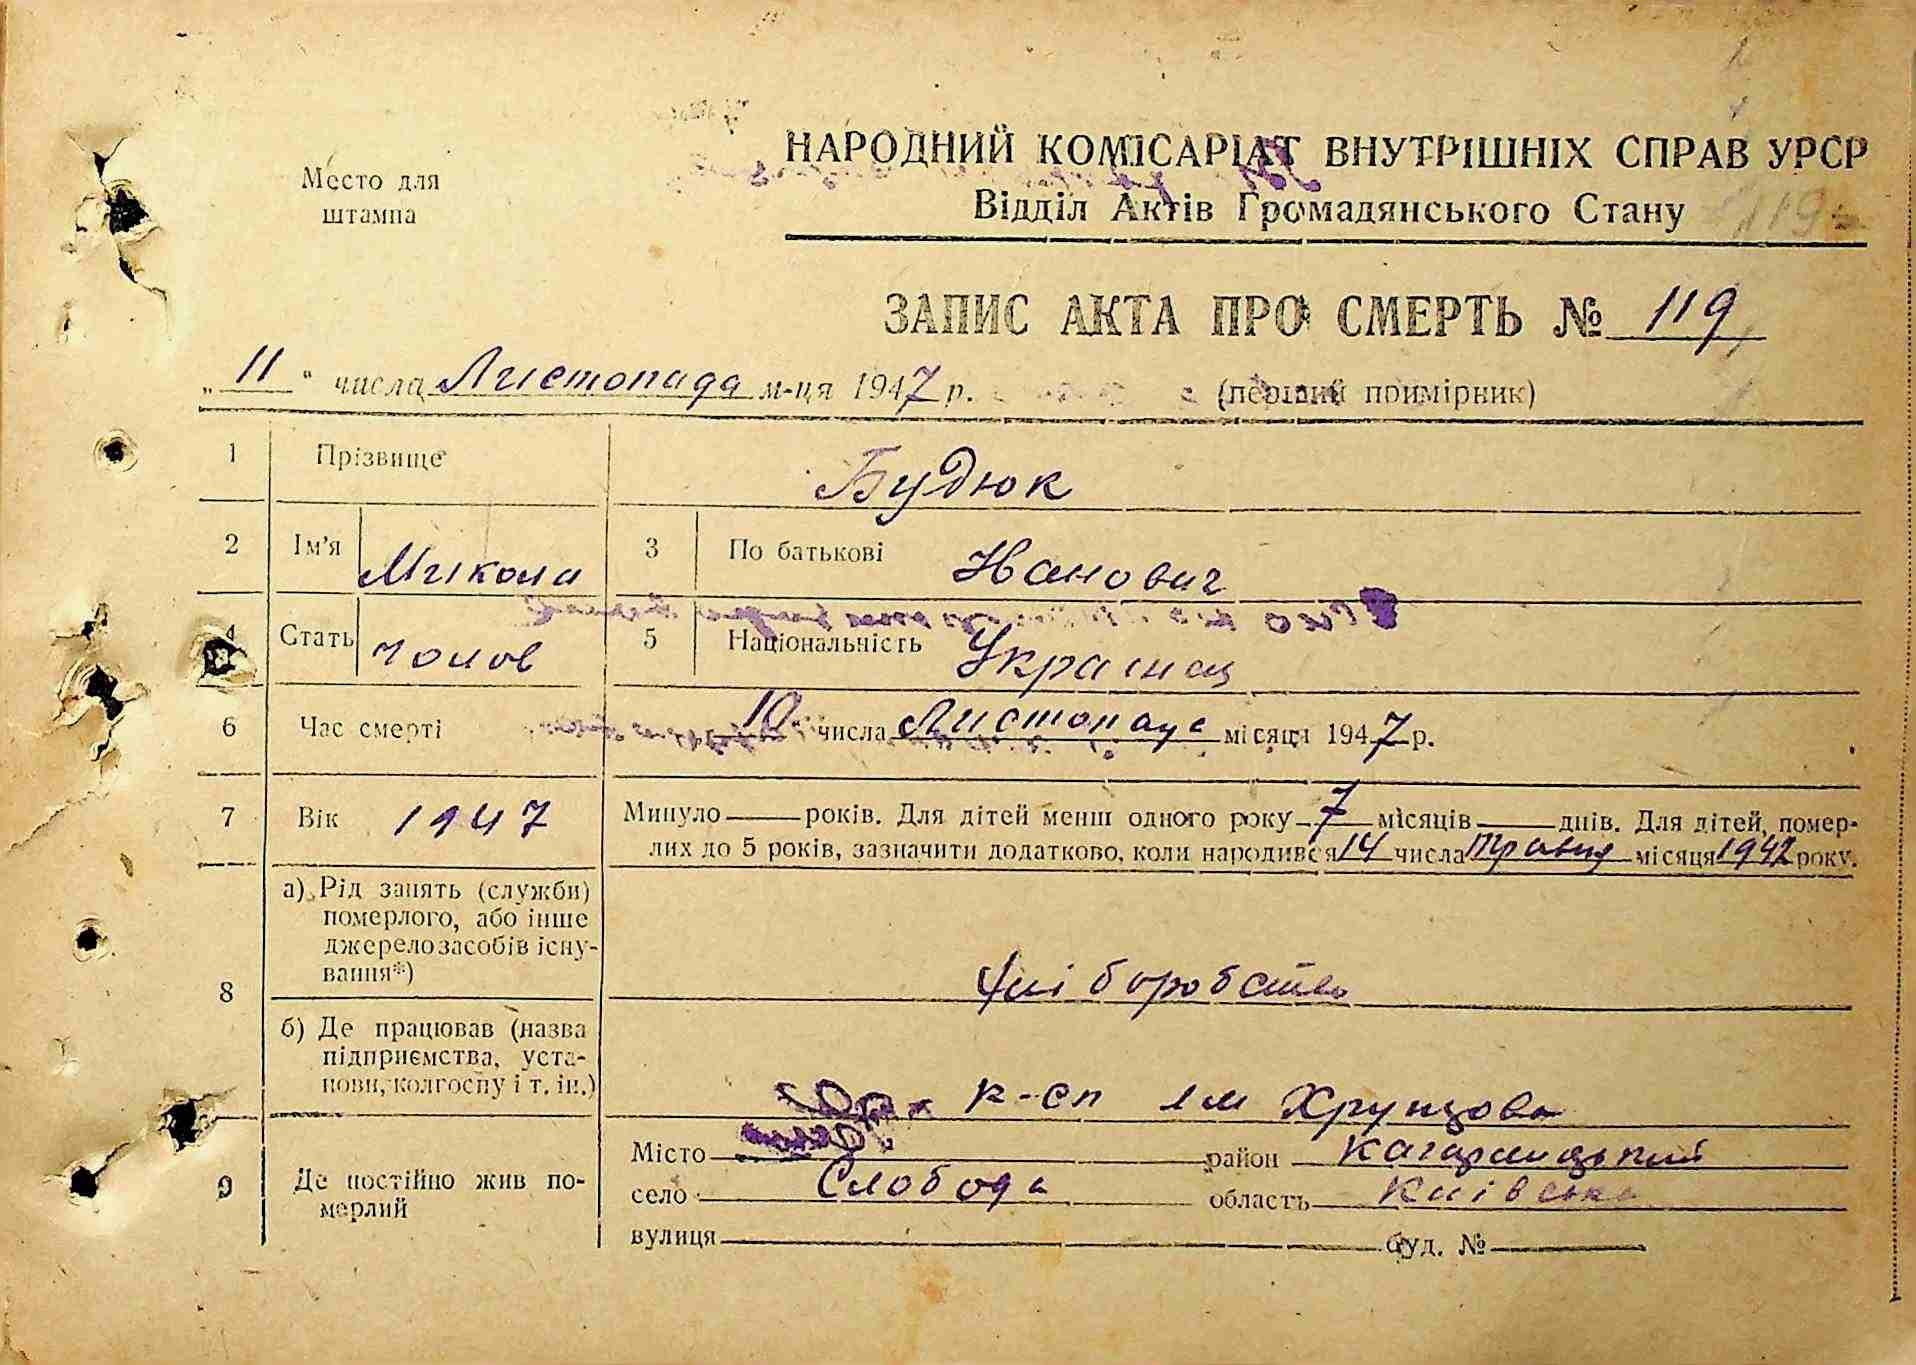 Место для
штампа
НАРОДНИЙ КОМІСАРІАТ ВНУТРІШНІХ СПРАВ УРСР
Відділ Актів Громадянського Стану
119
ЗАПИС АКТА ПРО СМЕРТЬ № 119
„11“ числа Листопада м-ця 1947 р. (перший примірник)
1 Прізвище Будюк
2 Ім'я Микола 3 По батькові Іванович
4 Стать чолов 5 Національність Українец
6 Час смерті 10 числа Листопада місяця 1947 р.
7 Вік 1947 Минуло — років. Для дітей менш одного року 7 місяців — днів. Для дітей, помер-
лих до 5 років, зазначити додатково, коли народився 14 числа Травня місяця 1947 року.
8 а) Рід занять (служби)
померлого, або інше
джерело засобів існу-
вання*)
хліборобство
б) Де працював (назва
підприємства, уста-
нови, колгоспу і т. ін.)
к-сп Ім Хрущова
9 Де постійно жив по-
мерлий
Місто — район Кагарлицький
село Слобода область Київська
вулиця — буд. № —